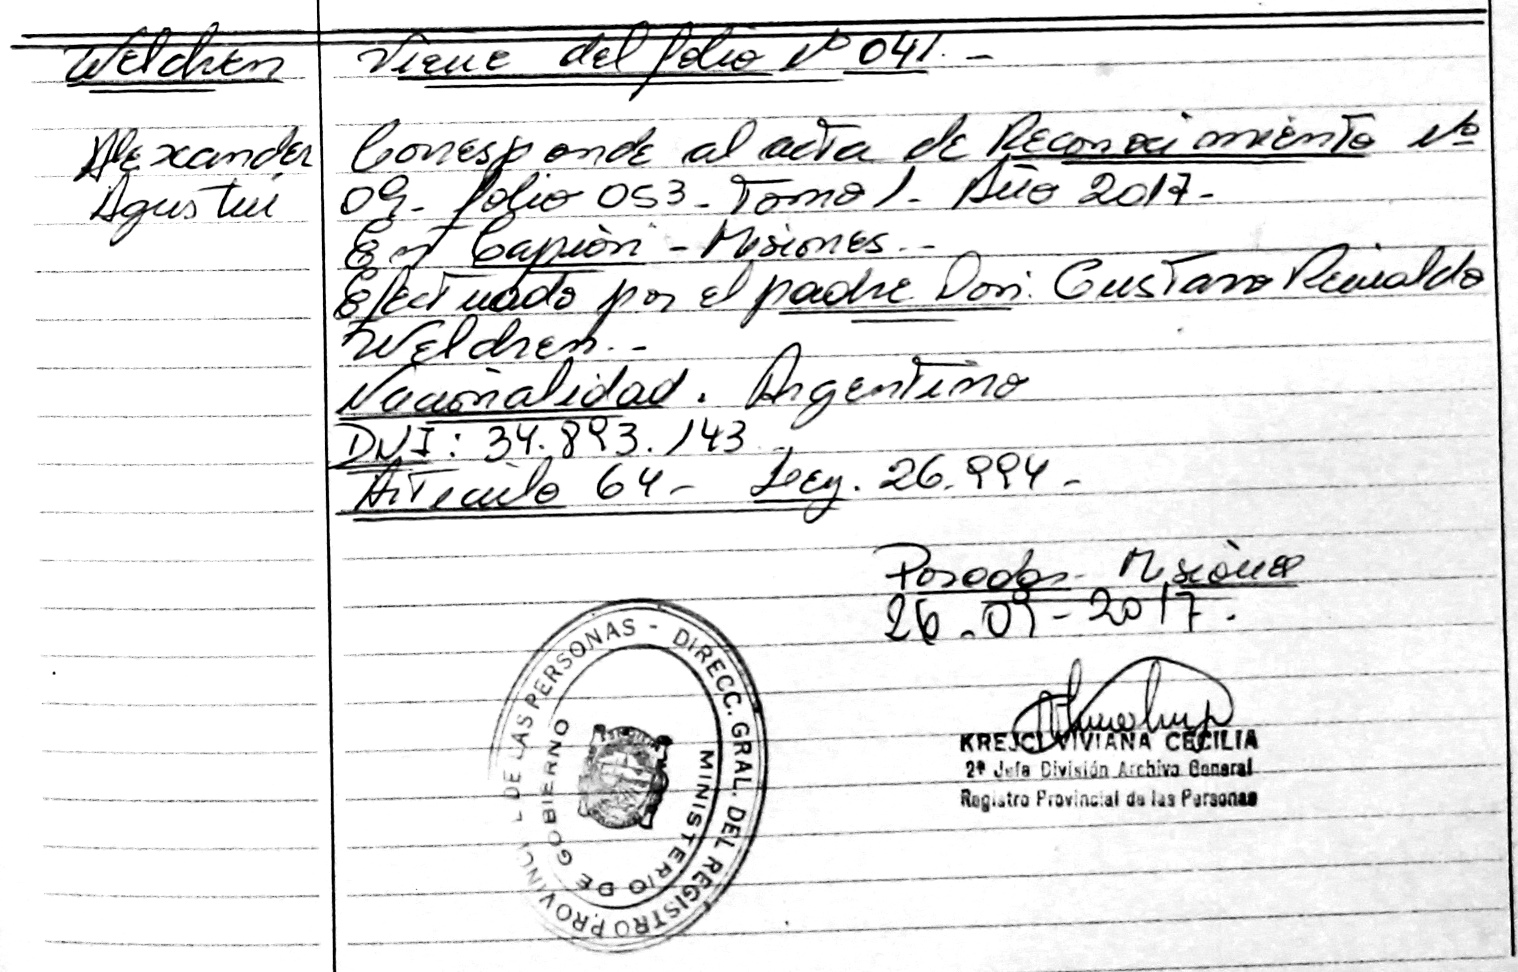 Welchen
Viene del folio Nº 041.-
Alexander
Agustin
Corresponde al acta de Reconocimiento Nº
09- folio 053- Tomo 1- Año 2017-
En Capioví - Misiones.-
Efectuado por el padre Don: Gustavo Reinaldo
Welchen.-
Nacionalidad. Argentino
DNI: 34.893.143
Articulo 64- Ley. 26.994-
Posadas- Misiones
26-09-2017.
DIRECC. GRAL. DEL REGISTRO PROVINCIAL DE LAS PERSONAS -
MINISTERIO DE GOBIERNO
KREJCI VIVIANA CECILIA
2ª Jefa División Archivo General
Registro Provincial de las Personas